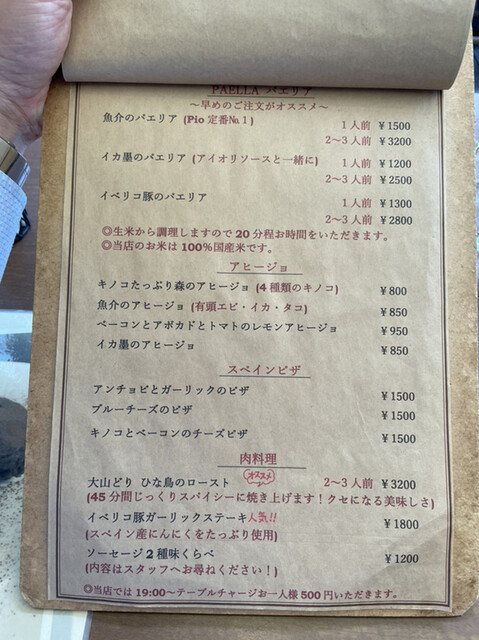 PAELLA パエリア
～早めのご注文がオススメ～
魚介のパエリア (Pio 定番№1) 1人前 ¥1500
2～3人前 ¥3200
イカ墨のパエリア (アイオリソースと一緒に) 1人前 ¥1200
2～3人前 ¥2500
イベリコ豚のパエリア 1人前 ¥1300
2～3人前 ¥2800
◎生米から調理しますので20分程お時間をいただきます。
◎当店のお米は100%国産米です。
アヒージョ
キノコたっぷり森のアヒージョ (4種類のキノコ) ¥800
魚介のアヒージョ (有頭エビ・イカ・タコ) ¥850
ベーコンとアボカドとトマトのレモンアヒージョ ¥950
イカ墨のアヒージョ ¥850
スペインピザ
アンチョビとガーリックのピザ ¥1500
ブルーチーズのピザ ¥1500
キノコとベーコンのチーズピザ ¥1500
肉料理
オススメ
大山どり ひな鳥のロースト 2～3人前 ¥3200
(45分間じっくりスパイシーに焼き上げます！クセになる美味しさ)
イベリコ豚ガーリックステーキ人気!! ¥1800
(スペイン産にんにくをたっぷり使用)
ソーセージ2種味くらべ ¥1200
(内容はスタッフへお尋ねください！)
◎当店では19:00～テーブルチャージお一人様500円いただきます。